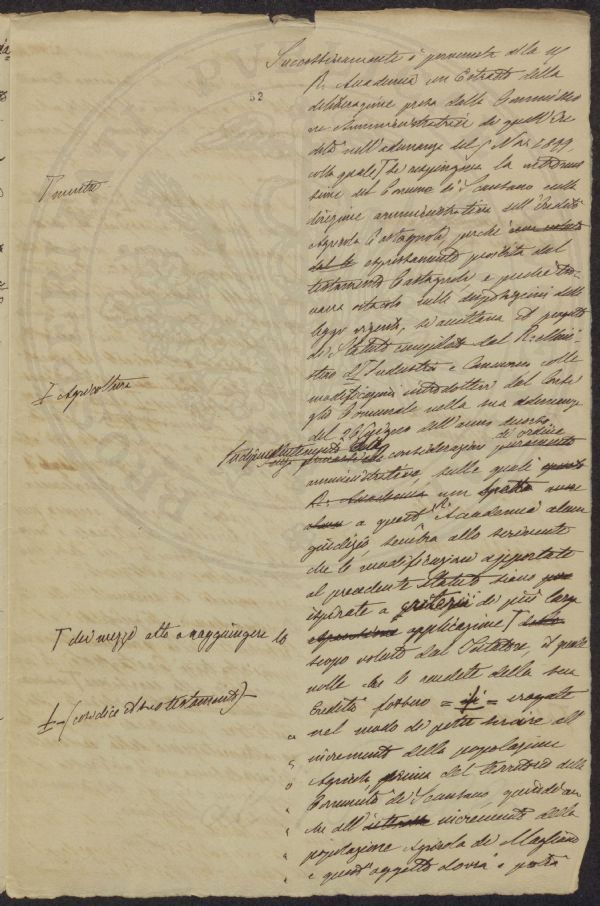 Successivamente è pervenuta alla
R. Accademia un Estratto della
deliberazione presa dalla Commissio
ne Amministratrice di quell'Ere
dità nell'adunanza del 5 Nov. 1899,
colla quale T se respingeva la
del Comune di Scansano nella
direzione amministrativa dell'Eredità
Agricola Castagnoli, perchè non voluta
dal te espressamente proibita dal
testamento Castagnoli e perchè tro-
vava ostacolo nelle disposizioni delle
legge vigente, si accettava il progetto
di Statuto compilato dal R. Mini-
stero d' Industria e Commercio colle
modificazioni introdottevi dal Consi
glio Comunale nella sua adunanza
del 26 Giugno dell'anno decorso
considerazioni di ordine puramente
amministrativo, sulle quali
R. Accademia non spetta
a quest' Accademia alcun
giudizio, sembra allo scrivente
che le modificazioni apportate
al precedente Statuto siano
ispirate a criterii di più larga
applicazione T dello
scopo voluto dal Testatore, il quale
volle che le rendite della sua
Eredità fossero = = erogate
nel modo di poter servire all'
incremento della popolazione
Agricola prima del territorio della
Comunità di Scansano, quindi an
che all' incremento della
popolazione Agricola di Magliano
e quest'oggetto dovrà e potrà
T mentre
Agricoltura
T dei mezzi atti a raggiungere lo
(così dice il suo testamento)
52